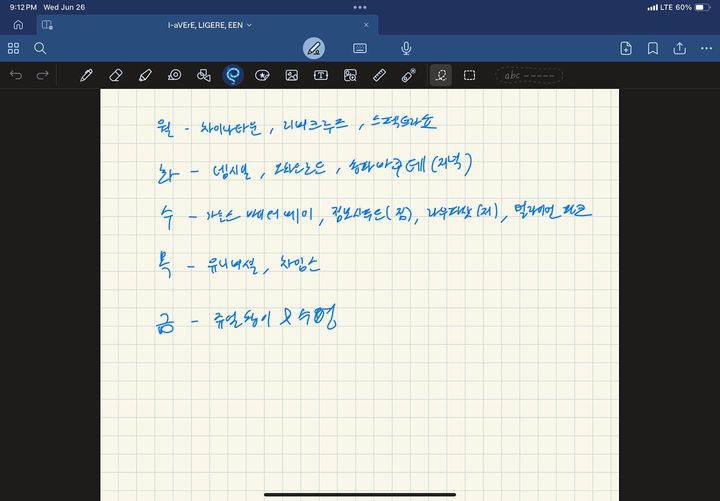 9:12 PM Wed Jun 26
LTE 60%
I-aVErE, LIGERE, EEN
abc
월 - 차이나타운, 리버크루즈, 스펙트라쇼
화 - 뎀시힐, 오차드로드, 송파바쿠테 (저녁)
수 - 가든스 바이더베이, 점보시푸드(점), 라우파삿 (저), 멀라이언 파크
목 - 유니버셜, 차임스
금 - 쥬얼창이 & 수영